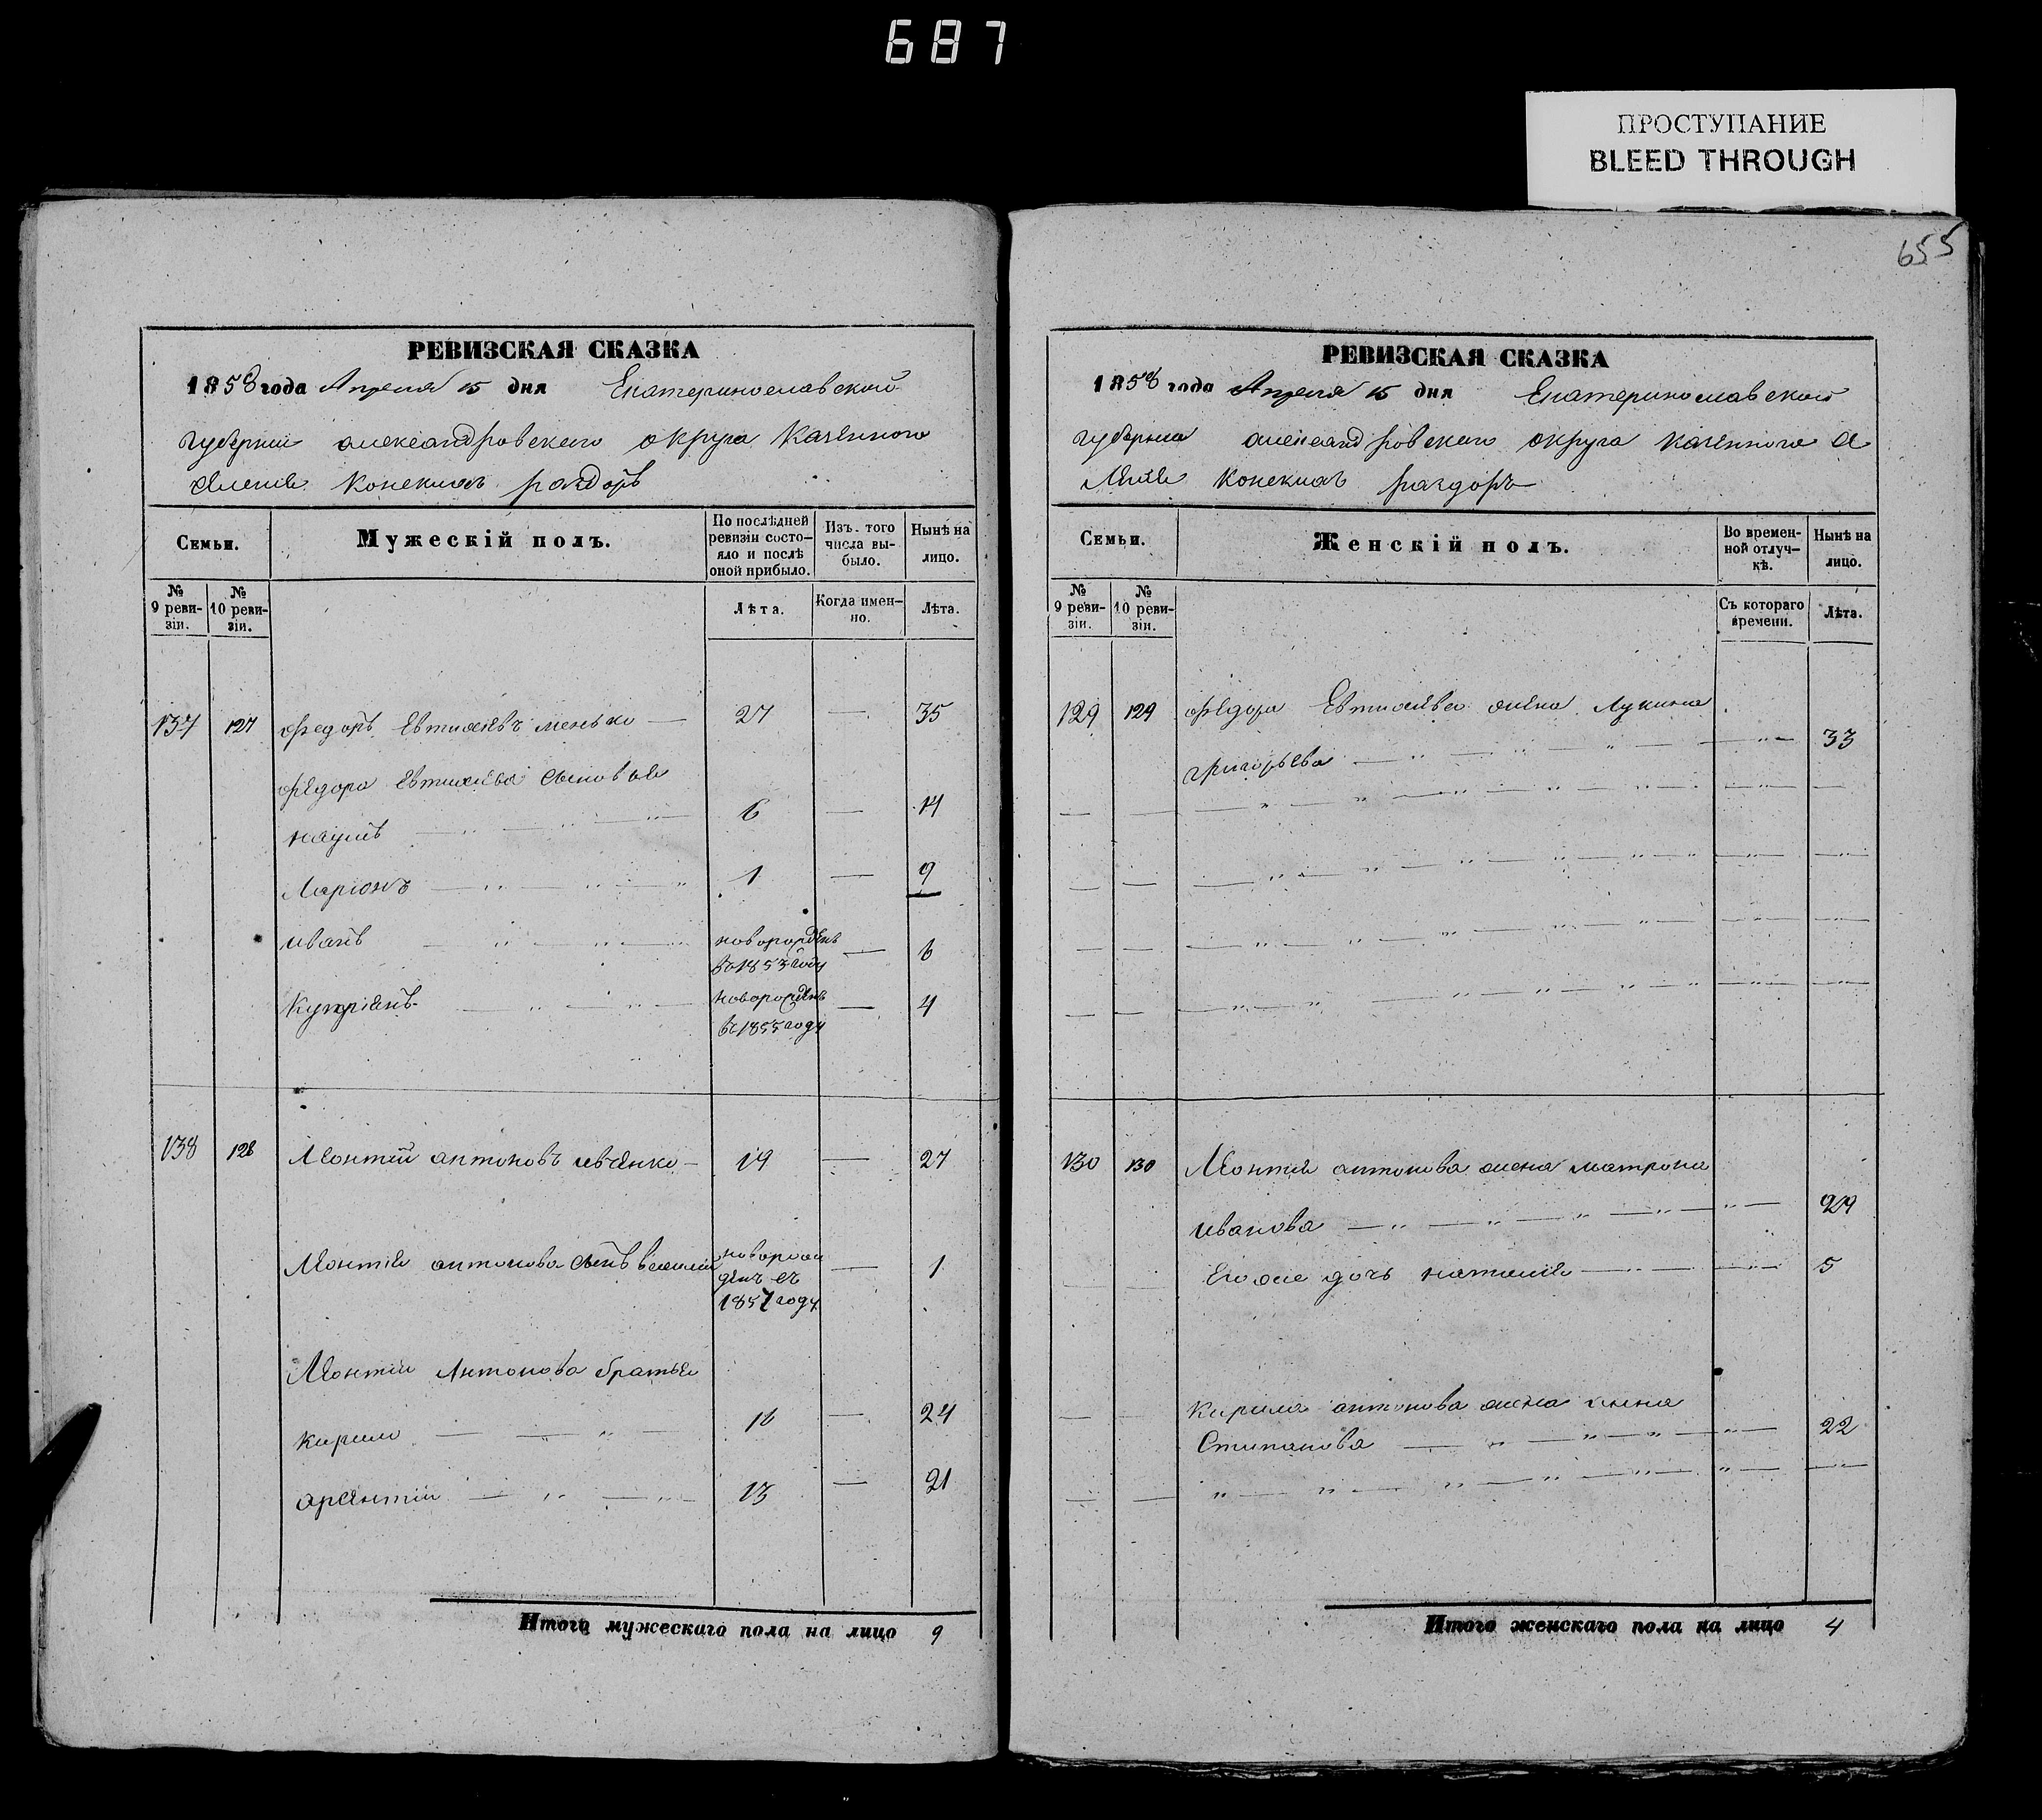 687
ПРОСТУПАНИЕ
BLEED THROUGH
655
РЕВИЗСКАЯ СКАЗКА
1858 года Апреля 15 дня Екатеринославской
губернии александровскаго округа казенного
селения Конскихъ раздоръ
Семьи.
Мужескій полъ.
По послѣдней ревизіи состо-
яло и послѣ оной прибыло.
Изъ того числа вы-
было.
Нынѣ на лицо.
№ 9 реви-
зіи.
№ 10 реви-
зіи.
Лѣта.
Когда имен-
но.
Лѣта.
137 127 Федоръ Евтихіевъ менько — 27 — 35
Федора Евтихіева сыновья
наумъ 6 — 14
Ларіонъ 1 — 9
иванъ новорожденъ въ 1853 году — 6
Купріянъ новорожденъ въ 1855 году — 4
138 128 Леонтій антоновъ ивченко — 19 — 27
Леонтія антонова сынъ василій новорож
денъ въ
1857 году — 1
Леонтія Антонова братья
кирило 16 — 24
арсентій 13 — 21
Итого мужескаго пола на лицо 9
РЕВИЗСКАЯ СКАЗКА
1858 года Апреля 15 дня Екатеринославской
губернии александровскаго округа казенного се
ления Конскихъ раздоръ
Семьи.
Женскій полъ.
Во времен-
ной отлуч-
кѣ.
Нынѣ на лицо.
№ 9 реви-
зіи.
№ 10 реви-
зіи.
Съ котораго времени.
Лѣта.
129 129 Федора Евтихіева жена Лукина
григорьева 33
130 130 Леонтія антонова жена матрона
иванова 29
Его же дочь наталия 5
Кирила антонова жена
Стипанова 22
Итого женскаго пола на лицо 4